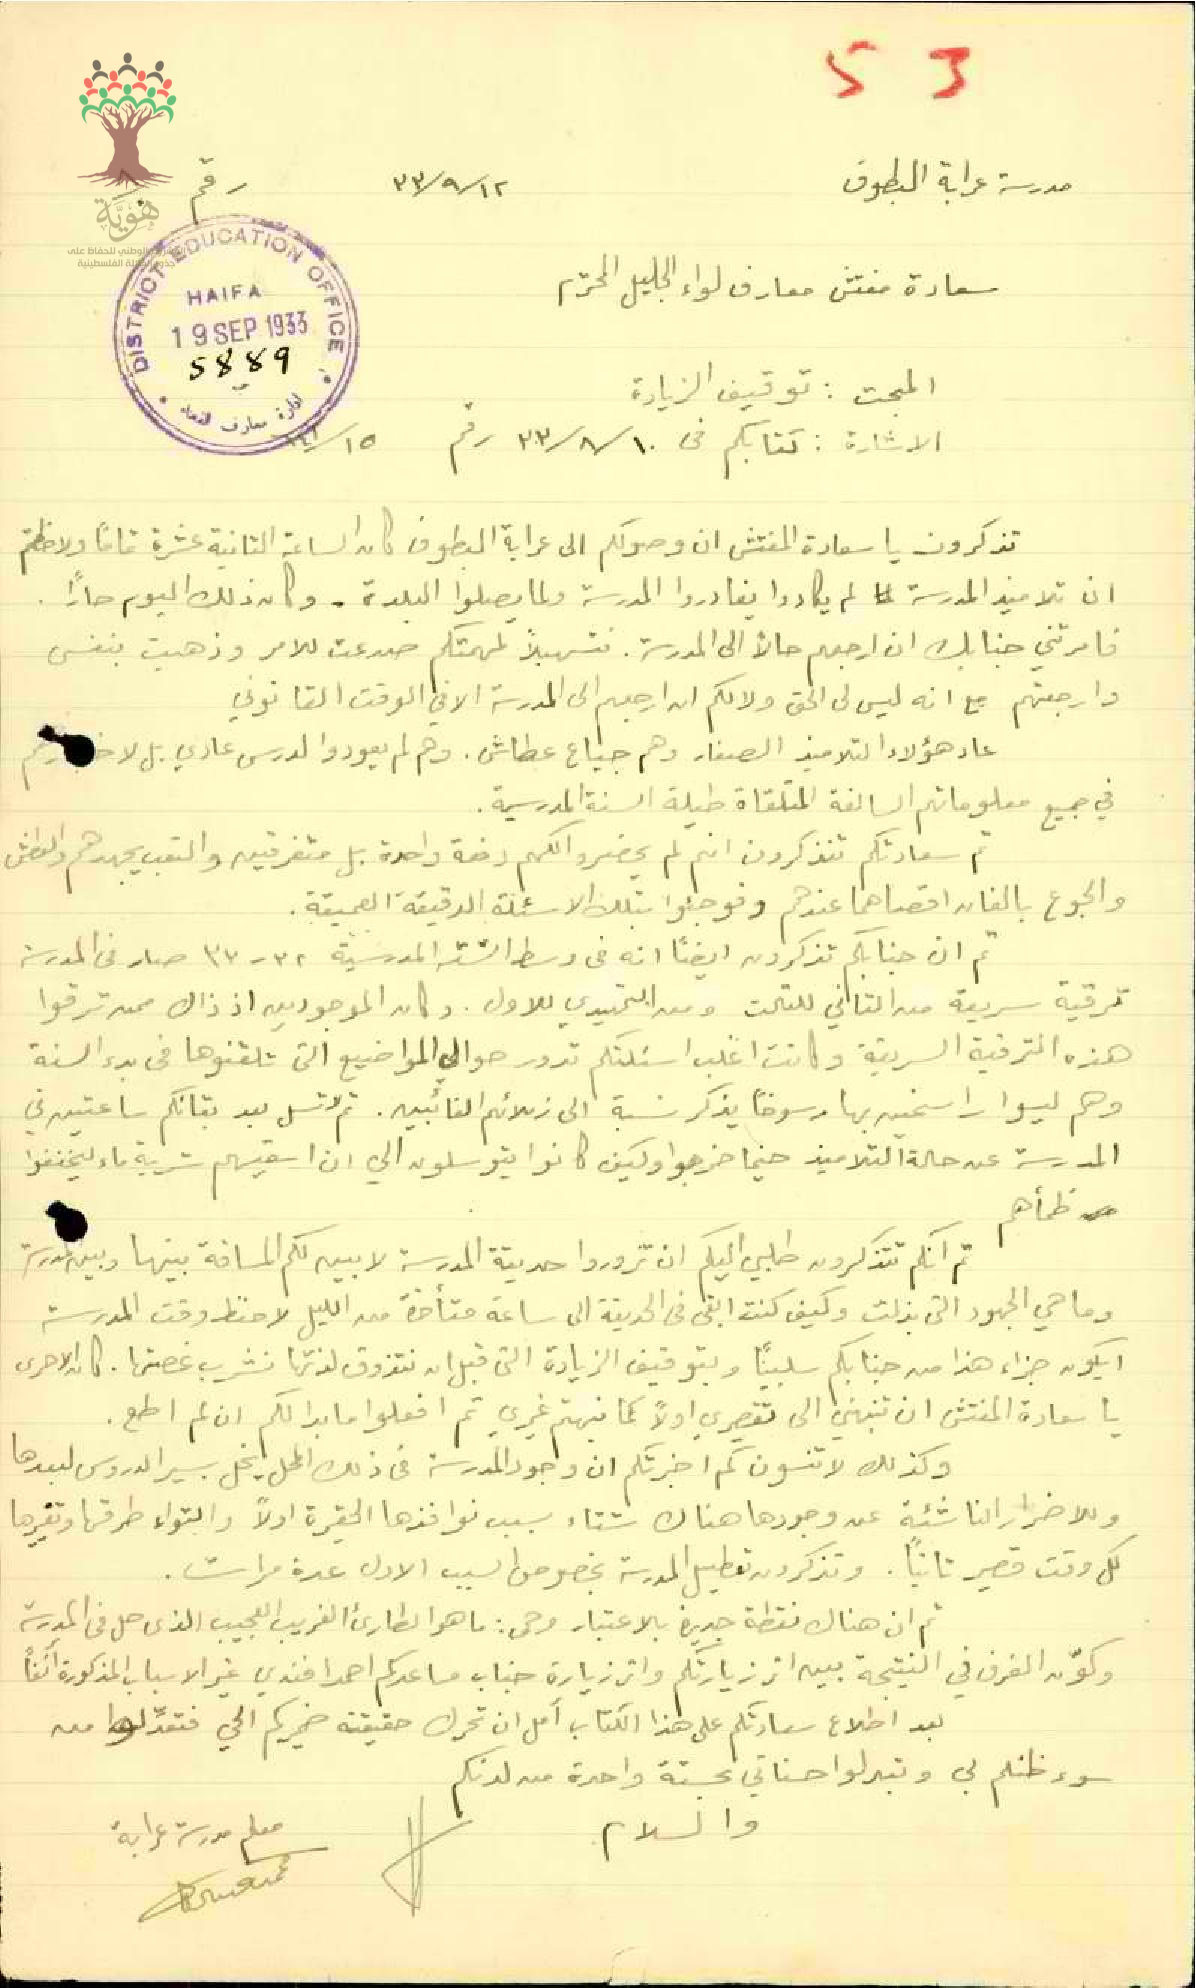 53
مدرسة عرابة البطوف ٣٣/٩/١٢ رقم
هَوِيَّة
المشروع الوطني للحفاظ على
جذور العائلة الفلسطينية
DISTRICT EDUCATION OFFICE
HAIFA
19 SEP 1933
5889
ادارة معارف
سعادة مفتش معارف لواء الجليل المحترم
المبحث : توقيف الزيادة
الاشارة : كتابكم في ٣٣/٨/١٠ رقم ١٥/
تذكرون يا سعادة المفتش ان وصولكم الى عرابة البطوف كان الساعة الثانية عشرة تمامًا ولاحظتم
ان تلاميذ المدرسة لم يكادوا يغادروا المدرسة ولما يصلوا البلدة . وكان ذلك اليوم حارًا .
فامرتني جنابك ان ارجعهم حالاً الى المدرسة . فتسهيلاً لمهمتكم صدعت للامر وذهبت بنفسي
وارجعتهم مع انه ليس لي الحق ولا لكم ان ارجعهم الى المدرسة الا في الوقت القانوني
عاد هؤلاء التلاميذ الصغار وهم جياع عطاش . وهم لم يعودوا لدرس عادي بل
في جميع معلوماتهم السالفة المتلقاة طيلة السنة المدرسية .
ثم سعادتكم تتذكرون انهم لم يحضروا لكم دفعة واحدة بل متفرقين والتعب يجهدهم والعطش
والجوع بالغان اقصاهما عندهم وفوجئوا بتلك الاسئلة الدقيقة العميقة .
ثم ان جنابكم تذكرون ايضًا انه في وسط السنة المدرسية ٣٢-٣٣ صار في المدرسة
ترقية سريعة من الثاني للثالث ومن التمهيدي للاول . وكان الموجودين اذ ذاك ممن ترقوا
هذه الترقية السريعة وكانت اغلب اسئلتكم تدور حوالي المواضيع التي تلقنوها في بدء السنة
وهم ليسوا راسخين بها رسوخًا يذكر نسبة الى زملائهم الغائبين . ثم لا تسل بعد بقائكم ساعتين في
المدرسة عن حالة التلاميذ حينما خرجوا وكيف كانوا يتوسلون الي ان اسقيهم شربة ماء ليخففوا
من ظمأهم
ثم انكم تتذكرون طلبي اليكم ان تزوروا حديقة المدرسة لابين لكم المسافة بينها وبين المدرسة
وما هي الجهود التي بذلت وكيف كنت ابقى في الحديقة الى ساعة متأخرة من الليل لاحفظ وقت المدرسة
ايكون جزاء هذا من جنابكم سلبيًا وبتوقيف الزيادة التي قبل ان نتذوق لذتها نشرب غصتها . كان الاحرى
يا سعادة المفتش ان تنبهني الى تقصيري اولاً كما نبهتم غيري ثم افعلوا ما بدا لكم ان لم اطع .
وكذلك لا تنسون كم اخبرتكم ان وجود المدرسة في ذلك المحل يخل بسير الدروس لبعدها
وللاضرار الناشئة عن وجودها هناك شتاء بسبب نوافذها الحقيرة اولاً والتواء طرقها وتغيرها
كل وقت قصير ثانيًا . وتذكرون تعطيل المدرسة بخصوص السبب الاول عدة مرات .
ثم ان هناك نقطة جديرة بالاعتبار وهي : ما هو الطارئ الغريب العجيب الذي حل في المدرسة
وكوّن الفرق في النتيجة بين اثر زيارتكم واثر زيارة جناب مساعدكم احمد افندي غير الاسباب المذكورة آنفًا
بعد اطلاع سعادتكم على هذا الكتاب آمل ان تحرك حقيقته ضميركم الحي فتعدلوا من
سوء ظنكم بي وتبدلوا حسناتي بحسنة واحدة من لدنكم
والسلام
معلم مدرسة عرابة